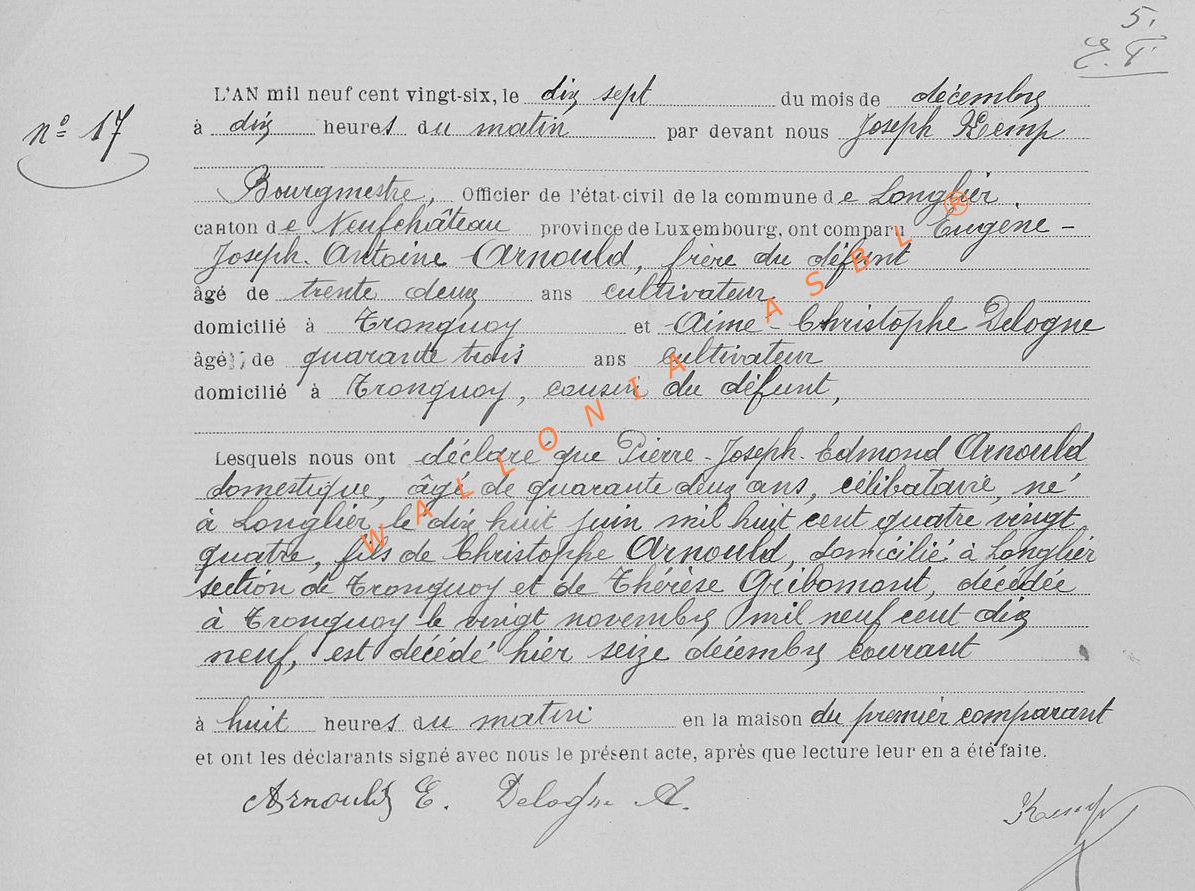 5.
E.T.
L'AN mil neuf cent vingt-six, le dix sept du mois de décembre
n° 17
à dix heures du matin par devant nous Joseph Kemp
Bourgmestre, Officier de l'état-civil de la commune de Longlier
canton de Neufchâteau province de Luxembourg, ont comparu Eugène -
Joseph - Antoine Arnould, frère du défunt
âgé de trente deux ans cultivateur
domicilié à Tronquoy et Aimé - Christophe Delogne
âgé de quarante trois ans cultivateur
domicilié à Tronquoy, cousin du défunt,
Lesquels nous ont déclaré que Pierre - Joseph - Edmond Arnould
domestique, âgé de quarante deux ans, célibataire, né
à Longlier, le dix huit juin mil huit cent quatre vingt
quatre, fils de Christophe Arnould, domicilié à Longlier
section de Tronquoy et de Thérèse Gribomont, décédée
à Tronquoy le vingt novembre mil neuf cent dix
neuf, est décédé hier seize décembre courant
à huit heures du matin en la maison du premier comparant
et ont les déclarants signé avec nous le présent acte, après que lecture leur en a été faite.
Arnould E. Delogne A.
Kemp
WALLONIA ASBL ®